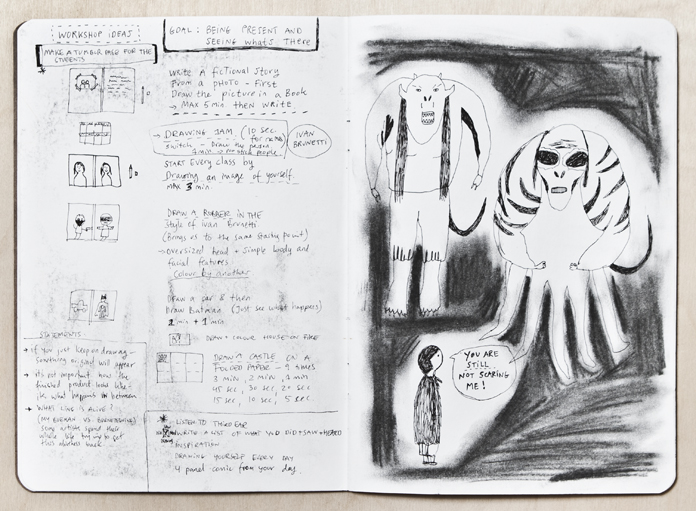 WORKSHOP IDEAS
MAKE A TUMBLR PAGE FOR THE
STUDENTS
GOAL: BEING PRESENT AND
SEEING what's THERE
WRITE A fictional story
From a PHOTO - First
Draw the picture in a Book
→ MAX 5 min then write
→ DRAWING JAM (10 sec
for name)
switch - Draw the
IVAN
BRUNETTI
START Every class by
Drawing an image of yourself
MAX 3 min.
DRAW A ROBBER IN THE
Style of Ivan Brunetti
(Brings us to the same starting point)
→ oversized head + Simple body and
facial features.
Colour by another
Draw a car & then
Draw Batman (Just see what happens)
2 min + 1 min
DRAW + COLOUR HOUSE ON FIRE
DRAW A CASTLE ON A
FOLDED PAPER - 9 times
3 min, 2 min, 1 min
45 sec, 30 sec, 20 sec
15 sec, 10 sec, 5 sec.
STATEMENTS
→ if you just keep on drawing
something original will appear
→ it's not important how the
finished product looks
its what happens in between
→ WHAT LINE is ALIVE?
some artists spend their
whole life trying to get
this aliveness back
LISTEN TO THIRD EAR
WRITE A LIST OF WHAT YOU DID + SAW + HEARD
INSPIRATION
DRAWING YOURSELF EVERY DAY
4 panel comic from your day
YOU ARE
STILL
NOT SCARING
ME!